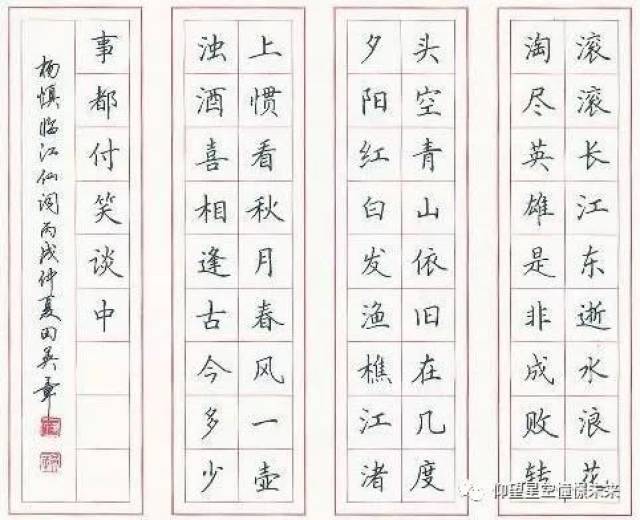 滚滚长江东逝水浪花
淘尽英雄是非成败转
头空青山依旧在几度
夕阳红白发渔樵江渚
上惯看秋月春风一壶
浊酒喜相逢古今多少
事都付笑谈中
杨慎临江仙词丙戌仲夏田英章
仰望星空憧憬未来